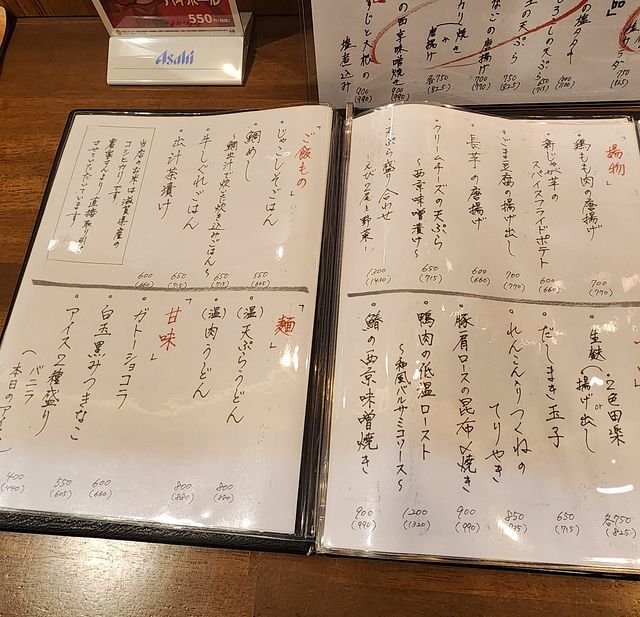 ハイボール
550円(税抜)
Asahi
「揚物」
・鶏もも肉の唐揚げ 700 (770)
・新じゃが芋の
スパイスフライドポテト 600 (660)
・ごま豆腐の揚げ出し 700 (770)
・長芋の唐揚げ 600 (660)
・クリームチーズの天ぷら
〜西京味噌漬け〜 650 (715)
天ぷら盛り合わせ
えび2尾と野菜 1300 (1430)
・2色田楽
・生麩( or
揚げ出し 各750 (825)
・だしまき玉子 650 (715)
・れんこん入りつくねの
てりやき 850
・豚肩ロースの昆布〆焼き 900 (990)
・鴨肉の低温ロースト
〜和風バルサミコソース〜 1200 (1320)
・鰆の西京味噌焼き 900 (990)
「ご飯もの」
・じゃこしそごはん 550 (605)
・鯛めし
〜鯛出汁で炊く炊き込みごはん〜 650 (715)
・牛しぐれごはん 650 (715)
・出汁茶漬け 600 (660)
当店のお米は滋賀県産の
コシヒカリです
「麺」
・(温)天ぷらうどん 800 (880)
・(温)肉うどん 800 (880)
「甘味」
・ガトーショコラ 600 (660)
・白玉黒みつきなこ 550 (605)
・アイス2種盛り 400 (440)
(バニラ
本日のアイス